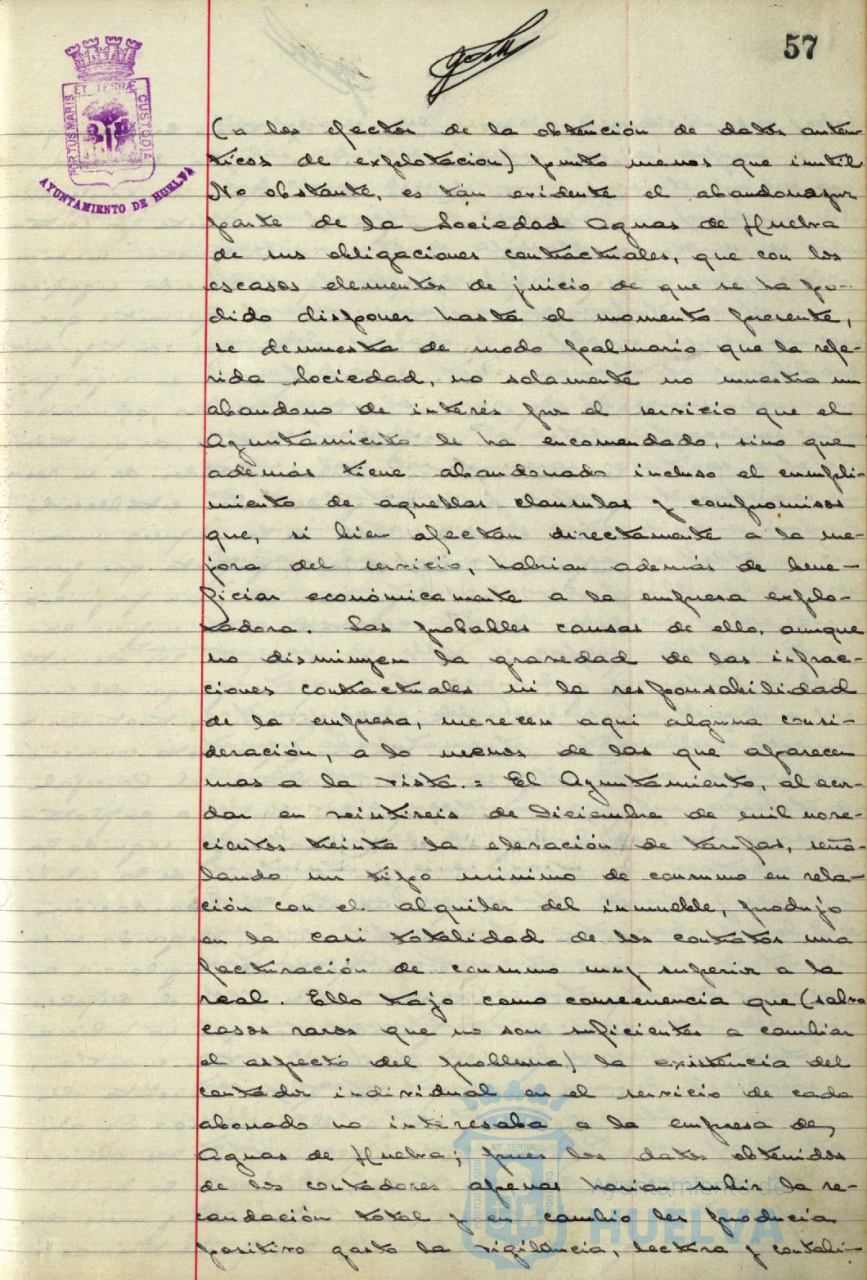 57
PORTUS MARIS ET TERRÆ CUSTODIA
AYUNTAMIENTO DE HUELVA
(a los efectos de la obtención de datos auten-
ticos de explotacion) punto menos que inutil
No obstante, es tan evidente el abandono por
parte de la Sociedad Aguas de Huelva
de sus obligaciones contractuales, que con los
escasos elementos de juicio de que se ha po-
dido disponer hasta el momento presente,
se demuestra de modo palmario que la refe-
rida Sociedad, no solamente no muestra un
abandono de interés por el servicio que el
Ayuntamiento le ha encomendado, sino que
además tiene abandonado incluso el cumpli-
miento de aquellas clausulas y compromisos
que, si bien afectan directamente a la me-
jora del servicio, habrian además de bene-
ficiar económicamente a la empresa explo-
tadora. Las probables causas de ello, aunque
no disminuyen la gravedad de las infrac-
ciones contractuales ni la responsabilidad
de la empresa, merecen aqui alguna consi-
deración, a lo menos de las que aparecen
mas a la vista.= El Ayuntamiento, al acor-
dar en veintiseis de Diciembre de mil nove-
cientos treinta la elevación de tarifas, seña-
lando un tipo minimo de consumo en rela-
ción con el alquiler del inmueble, produjo
en la casi totalidad de los contratos una
facturación de consumo muy superior a la
real. Ello trajo como consecuencia que (salvo
casos raros que no son suficientes a cambiar
el aspecto del problema) la existencia del
contador individual en el servicio de cada
abonado no interesaba a la empresa de
Aguas de Huelva; pues los datos obtenidos
de los contadores apenas harian subir la re-
caudación total y en cambio les producia
positivo gasto la vigilancia, lectura y contabi-
Ayuntamiento de
HUELVA